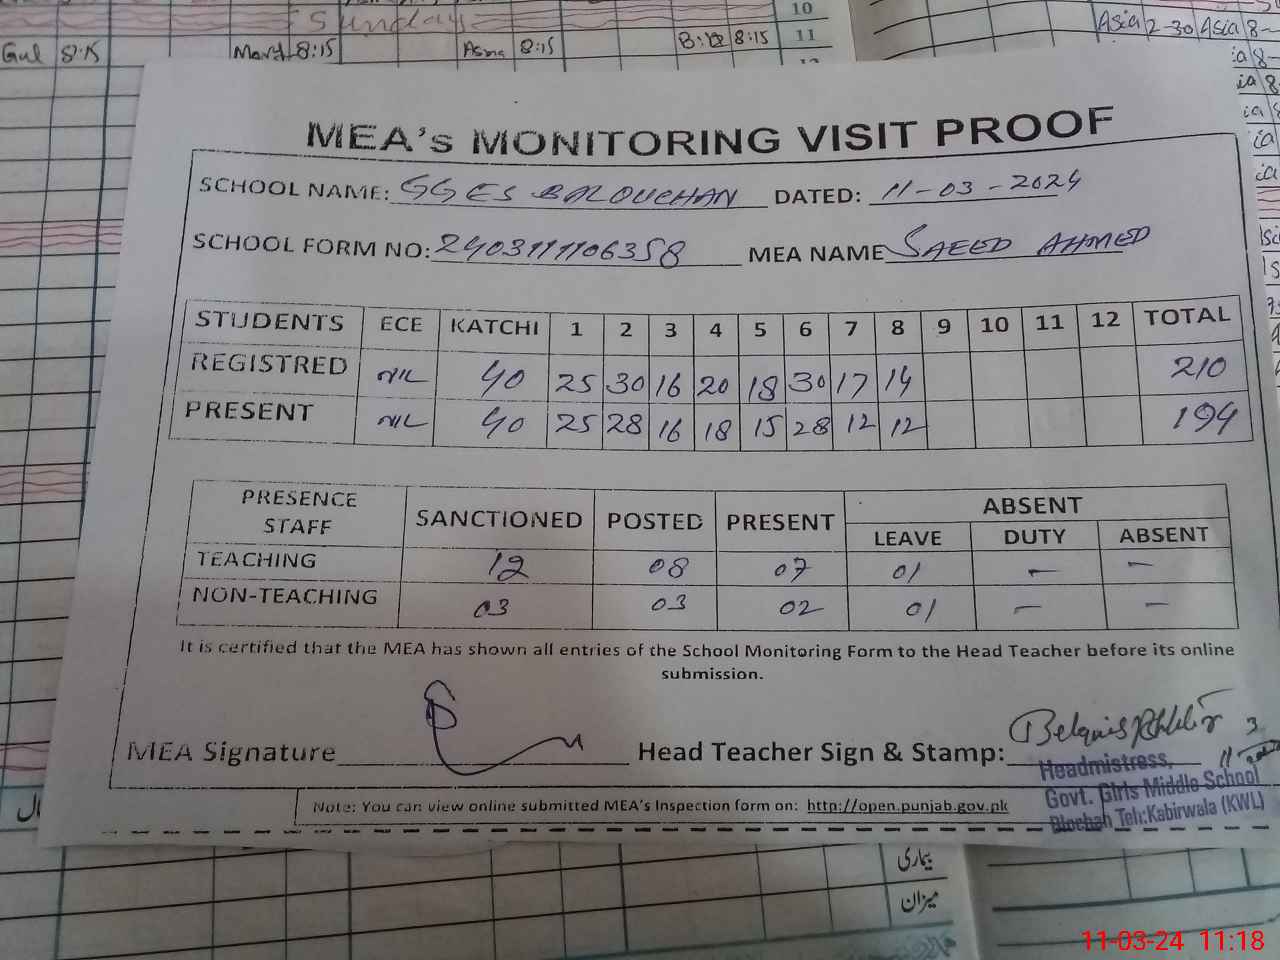 Sunday
10
Gul 8:15 8:15 Asma 8:15 8:15 11
Asia 2-30 Asia 8-
MEA's MONITORING VISIT PROOF
SCHOOL NAME: GGES BALOUCHAN DATED: 11-03-2024
SCHOOL FORM NO: 2403111106358 MEA NAME SAEED AHMED
STUDENTS ECE KATCHI 1 2 3 4 5 6 7 8 9 10 11 12 TOTAL
REGISTRED NIL 40 25 30 16 20 18 30 17 14 210
PRESENT NIL 40 25 28 16 18 15 28 12 12 194
PRESENCE STAFF SANCTIONED POSTED PRESENT ABSENT
LEAVE DUTY ABSENT
TEACHING 12 08 07 01 – –
NON-TEACHING 03 03 02 01 – –
It is certified that the MEA has shown all entries of the School Monitoring Form to the Head Teacher before its online
submission.
MEA Signature Head Teacher Sign & Stamp:
Headmistress,
Govt. Girls Middle School
Blochan Teh:Kabirwala (KWL)
Note: You can view online submitted MEA's Inspection form on: http://open.punjab.gov.pk
بیماری
میزان
11-03-24 11:18